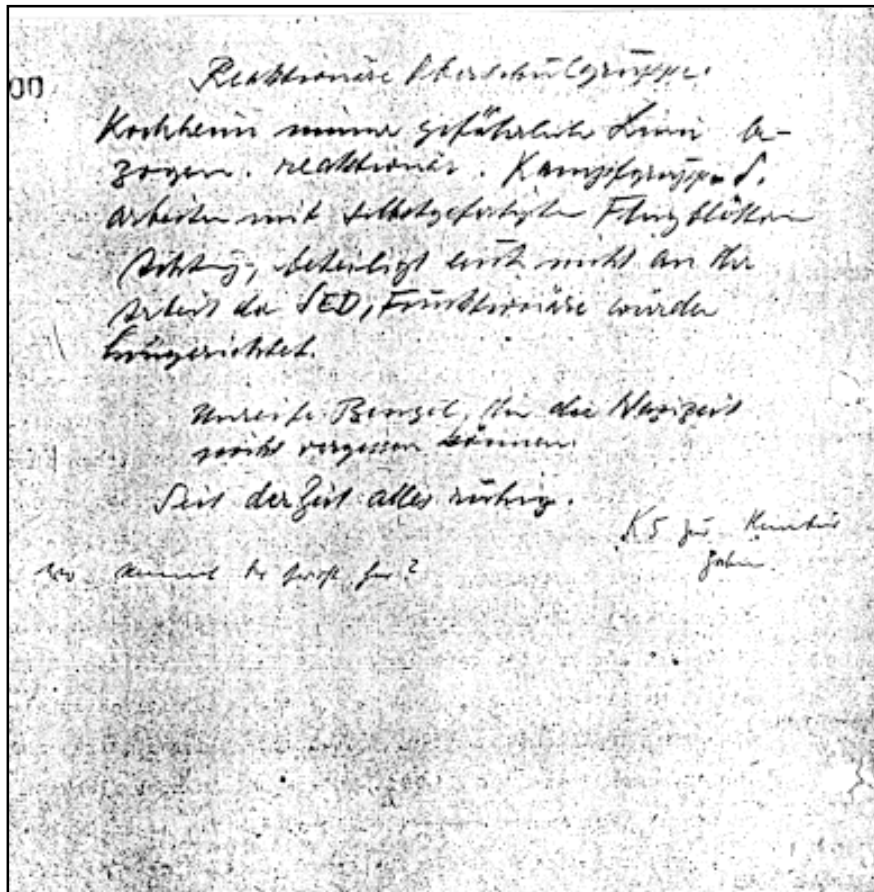 00
Reaktionäre Oberschulgruppe.
gefährliche be-
zogen. reaktionär. Kampfgruppe S.
arbeiten mit selbstgefertigten Flugblättern
Achtung, beteiligt euch nicht an der
Arbeit der SED, Funktionäre würden
hingerichtet.
Unreife Bengel, die die Nazizeit
nicht vergessen können.
Seit der Zeit alles ruhig.
K5 zur
wo kommt her?